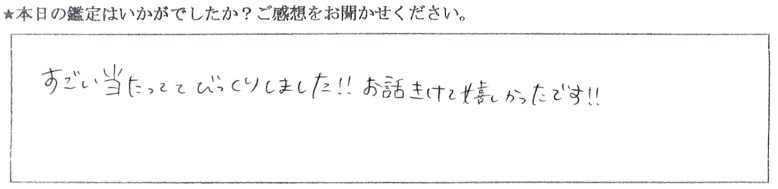 ★本日の鑑定はいかがでしたか？ご感想をお聞かせください。
すごい当たっててびっくりしました!! お話きけて嬉しかったです!!